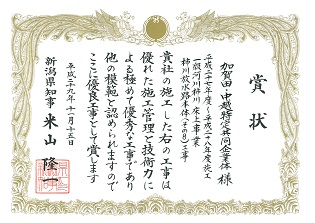 賞状
加賀田・中越特定共同企業体 様
平成二十七年度～平成二十八年度施工
一級河川柿川床上事業
柿川放水路本体(その8)工事
貴社の施工した右の工事は
優れた施工管理と技術力に
よる極めて優秀な工事であり
他の模範と認められますので
ここに優良工事として賞します
平成二十九年十一月十五日
新潟県知事 米山隆一